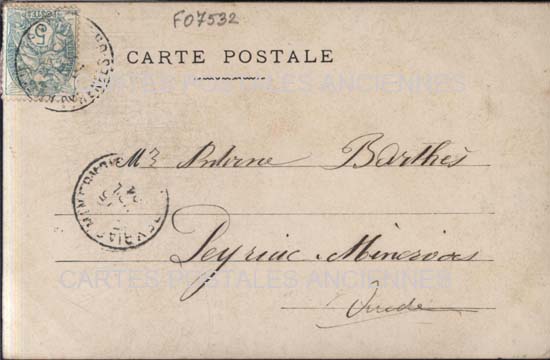 F07532
CARTE POSTALE
CARTES POSTALES ANCIENNES
Mr Antoine Barthès
Peyriac-Minervois
CARTES POSTALES ANCIENNES
Aude